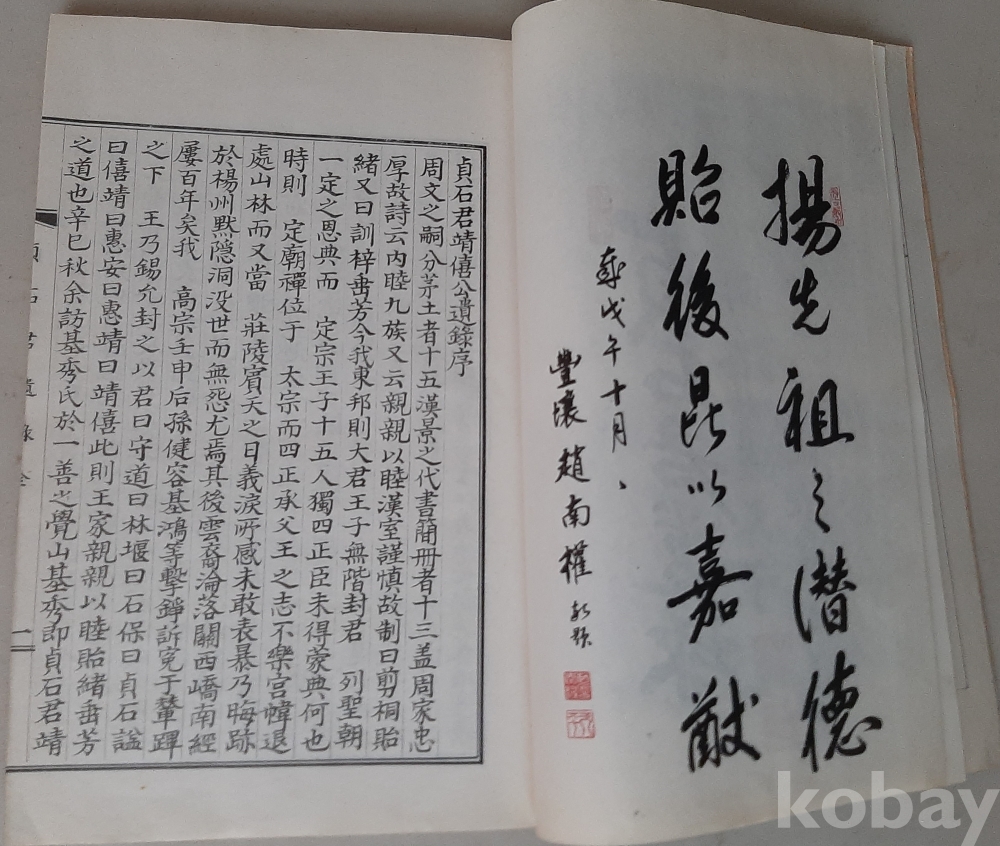 揚先祖之潛德
貽後昆以嘉猷
歲戊午十月、
豐壤趙南權
貞石君靖僖公遺錄序
周文之嗣分茅土者十五漢景之代書簡冊者十三盖周家忠
厚故詩云內睦九族又云親親以睦漢室謹慎故制曰剪桐貽
緒又曰訓梓垂芳今我東邦則大君王子無階封君 列聖朝
一定之恩典而 定宗王子十五人獨四正臣未得蒙典何也
時則 定廟禪位于 太宗而四正承父王之志不樂宮幃退
處山林而又當 莊陵賓天之日義淚所感未敢表暴乃晦跡
於楊州默隱洞没世而無怨尤焉其後雲裔淪落關西嶠南經
屢百年矣我 高宗壬申后孫健容基鴻等擊錚訴冤于輦蹕
之下 王乃錫允封之以君曰守道曰林堰曰石保曰貞石謚
曰僖靖曰惠安曰惠靖曰靖僖此則王家親親以睦貽緒垂芳
之道也辛巳秋余訪基秀氏於一善之覺山基秀即貞石君靖
貞石君遺錄全
一
kobay